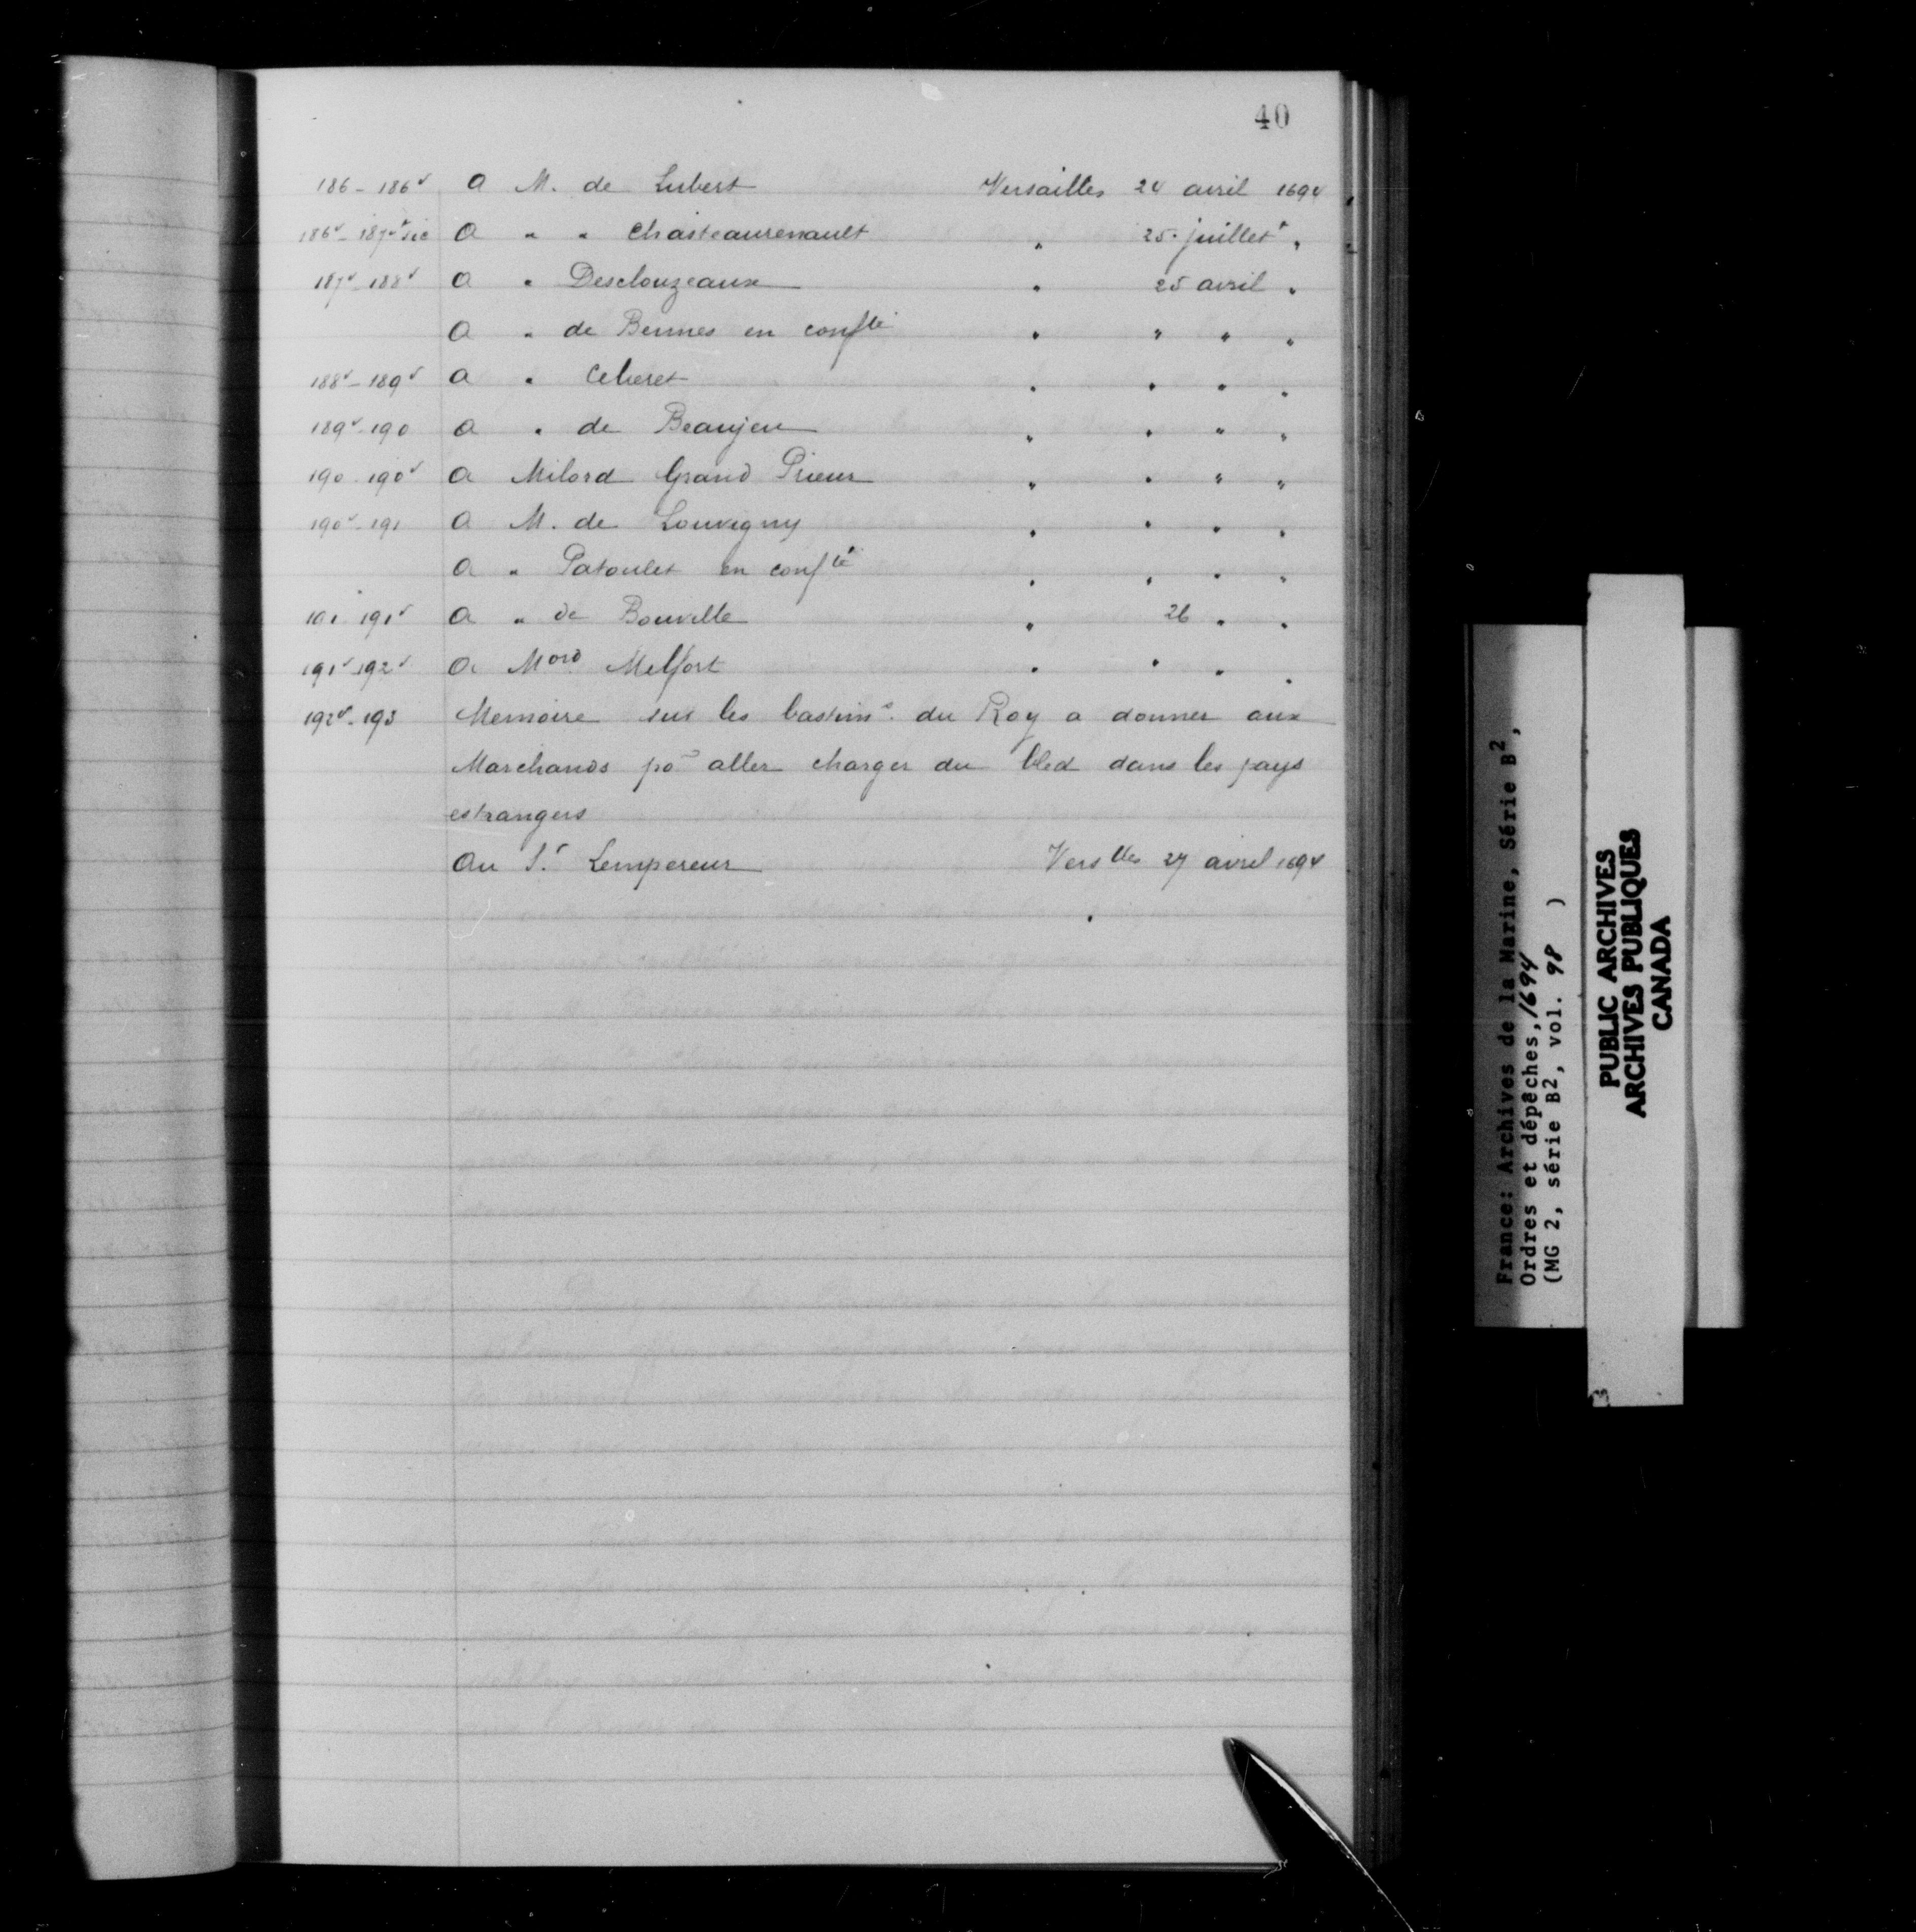 40
186 - 186v A M. de Lubert Versailles 24 avril 1694
186v - 187v sic A " " Chasteaurenault " 25 juillet "
187v - 188v A " Desclouzeaux " 25 avril "
A " de Bennes en conf té " " " "
188v - 189v A " Ceberet " " " "
189v - 190 A " de Beaujeu " " " "
190 - 190v A Milord Grand Prieur " " " "
190v - 191 A M. de Louvigny " " " "
A " Patoulet en conf té " " " "
191 - 191v A " de Bouville " 26 " "
191v - 192v A Mord Melfort " " " "
192v - 193 Memoire sur les bastims. du Roy a donner aux
Marchands po~ aller charger du bled dans les pays
estrangers
Au Sr. Lempereur Vers lles 27 avril 1694
France: Archives de la Marine, Série B2,
Ordres et dépêches, 1694
(MG 2, série B2, vol. 98 )
PUBLIC ARCHIVES
ARCHIVES PUBLIQUES
CANADA